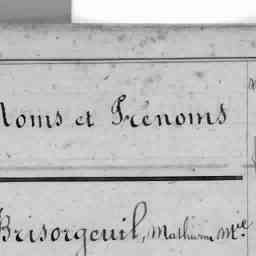 Noms et Prénoms
Brisorgeuil, Mathurin Mie